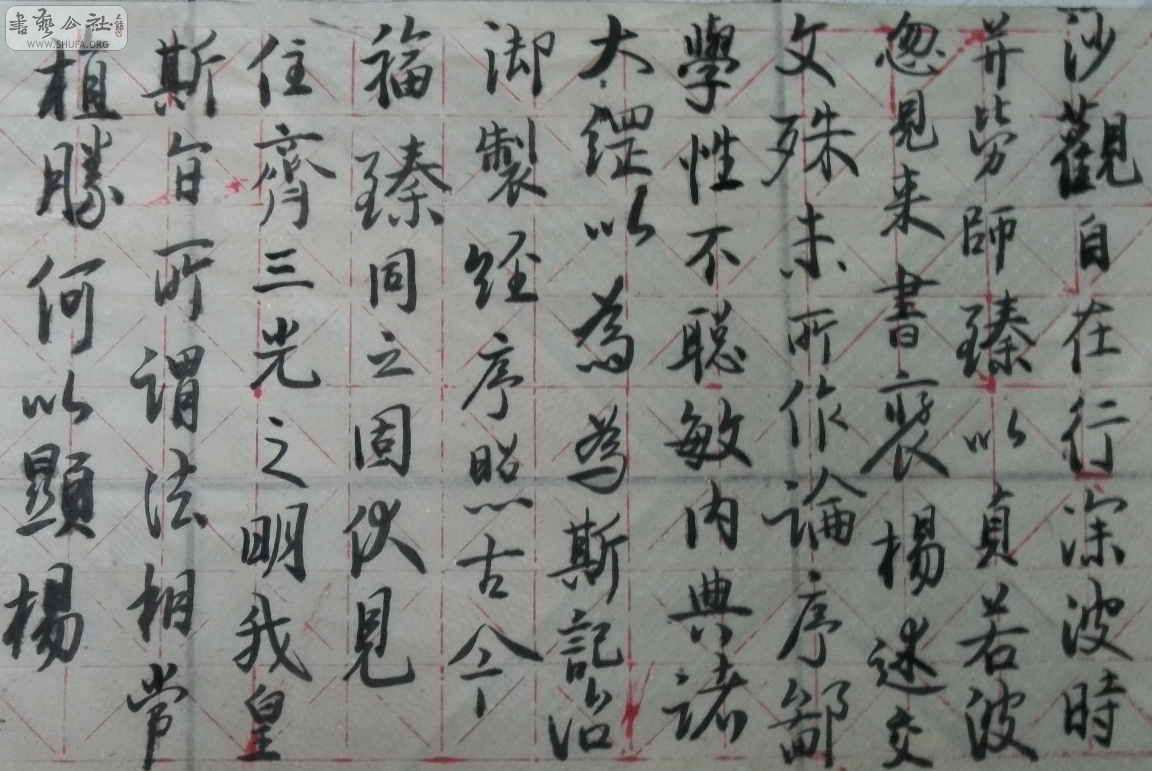 沙觀自在行深波時
并勞師臻以貞若波
忽見来書褒楊述交
文殊未所作論序鄙
學性不聪敏内典諸
大以為為斯記治
御製經序照古今
福臻同之固伏見
住齊三光之明我皇
斯旨所謂法相常
植勝何以顯楊
書藝公社
WWW.SHUFA.ORG